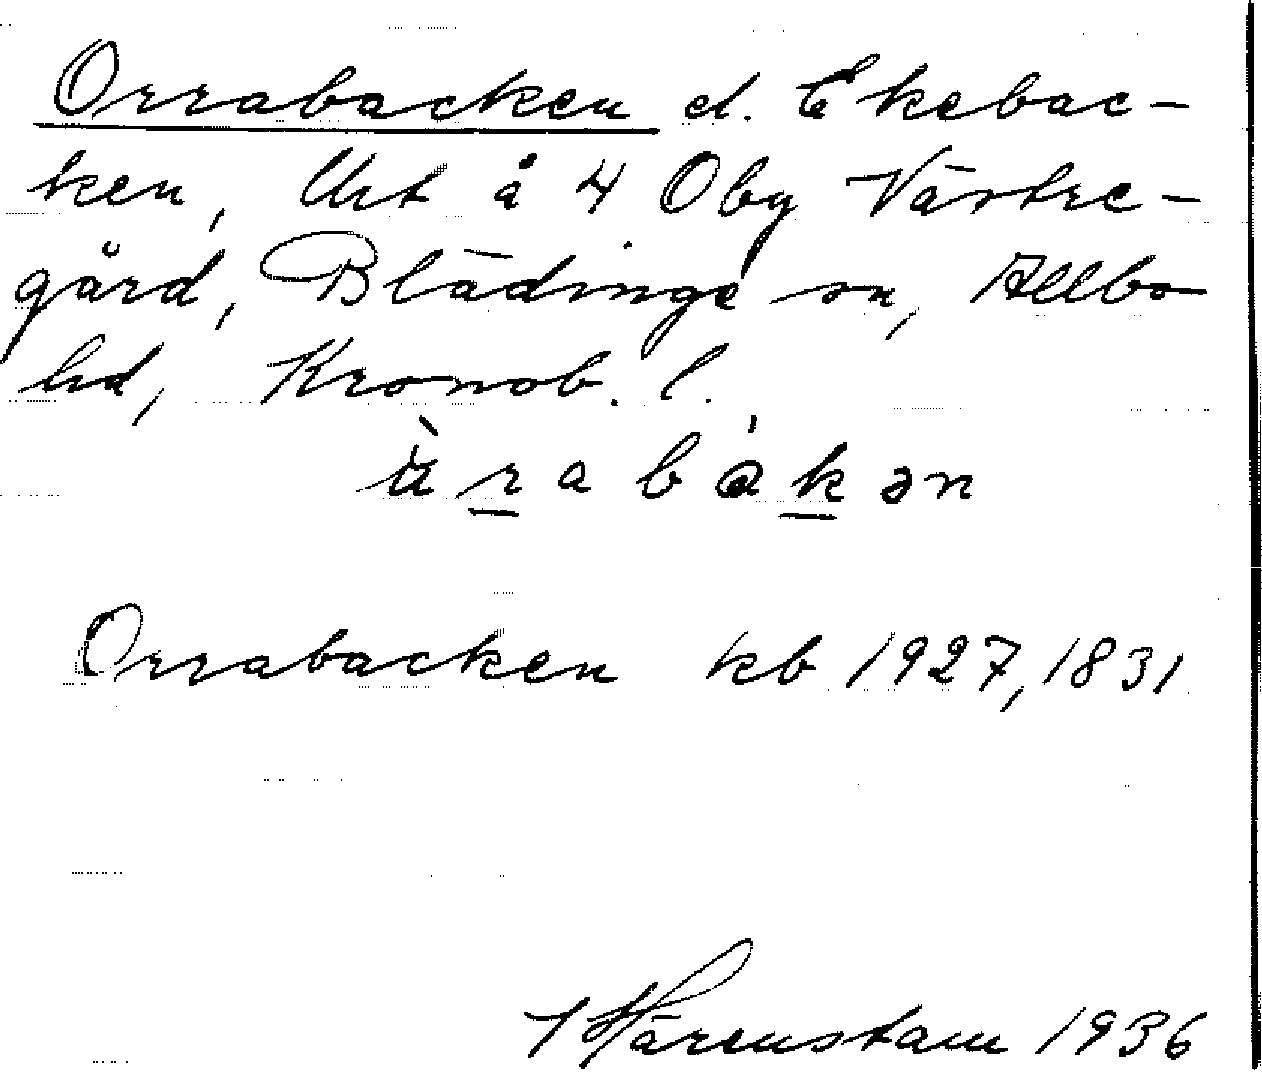 Orrabacken el. Ekebac-
ken, Urt å 4 Oby Västre-
gård, Blädinge sn, Allbo
hd, Kronob. l.
àrabákən
Orrabacken kb 1927, 1831
Härenstam 1936